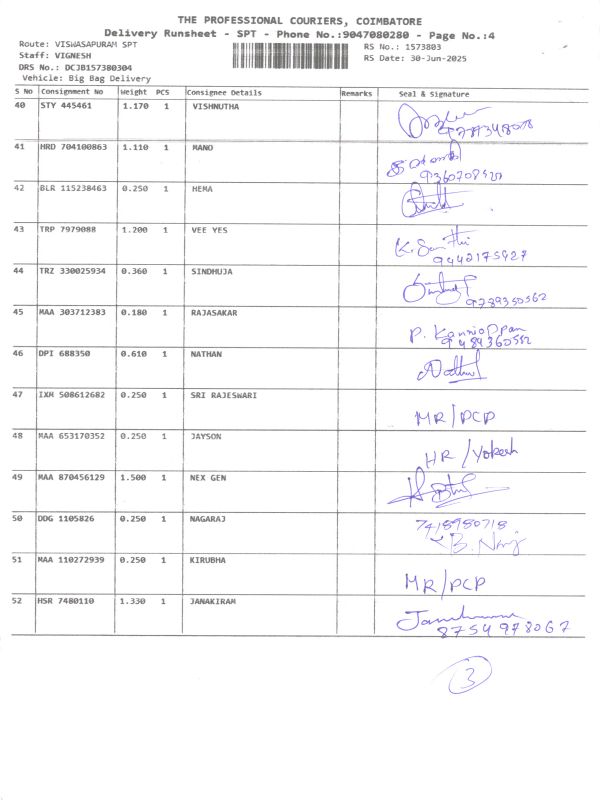 THE PROFESSIONAL COURIERS, COIMBATORE
Delivery Runsheet - SPT - Phone No.:9047080280 - Page No.:4
Route: VISWASAPURAM SPT RS No.: 1573803
Staff: VIGNESH RS Date: 30-Jun-2025
DRS No.: DCJB157380304
Vehicle: Big Bag Delivery
S No Consignment No Weight PCS Consignee Details Remarks Seal & Signature
40 STY 445461 1.170 1 VISHNUTHA
41 HRD 704100863 1.110 1 MANO
42 BLR 115238463 0.250 1 HEMA
43 TRP 7979088 1.200 1 VEE YES
K. Santhi
9442175927
44 TRZ 330025934 0.360 1 SINDHUJA
9789350562
45 MAA 303712383 0.180 1 RAJASAKAR
P. Kannioppan
9489360552
46 DPI 688350 0.610 1 NATHAN
Nathan
47 IXM 508612682 0.250 1 SRI RAJESWARI
MR/PCP
48 MAA 653170352 0.250 1 JAYSON
HR /Yokesh
49 MAA 870456129 1.500 1 NEX GEN
50 DDG 1105826 0.250 1 NAGARAJ
7418980718
51 MAA 110272939 0.250 1 KIRUBHA
MR/PCP
52 HSR 7480110 1.330 1 JANAKIRAM
8754978067
3